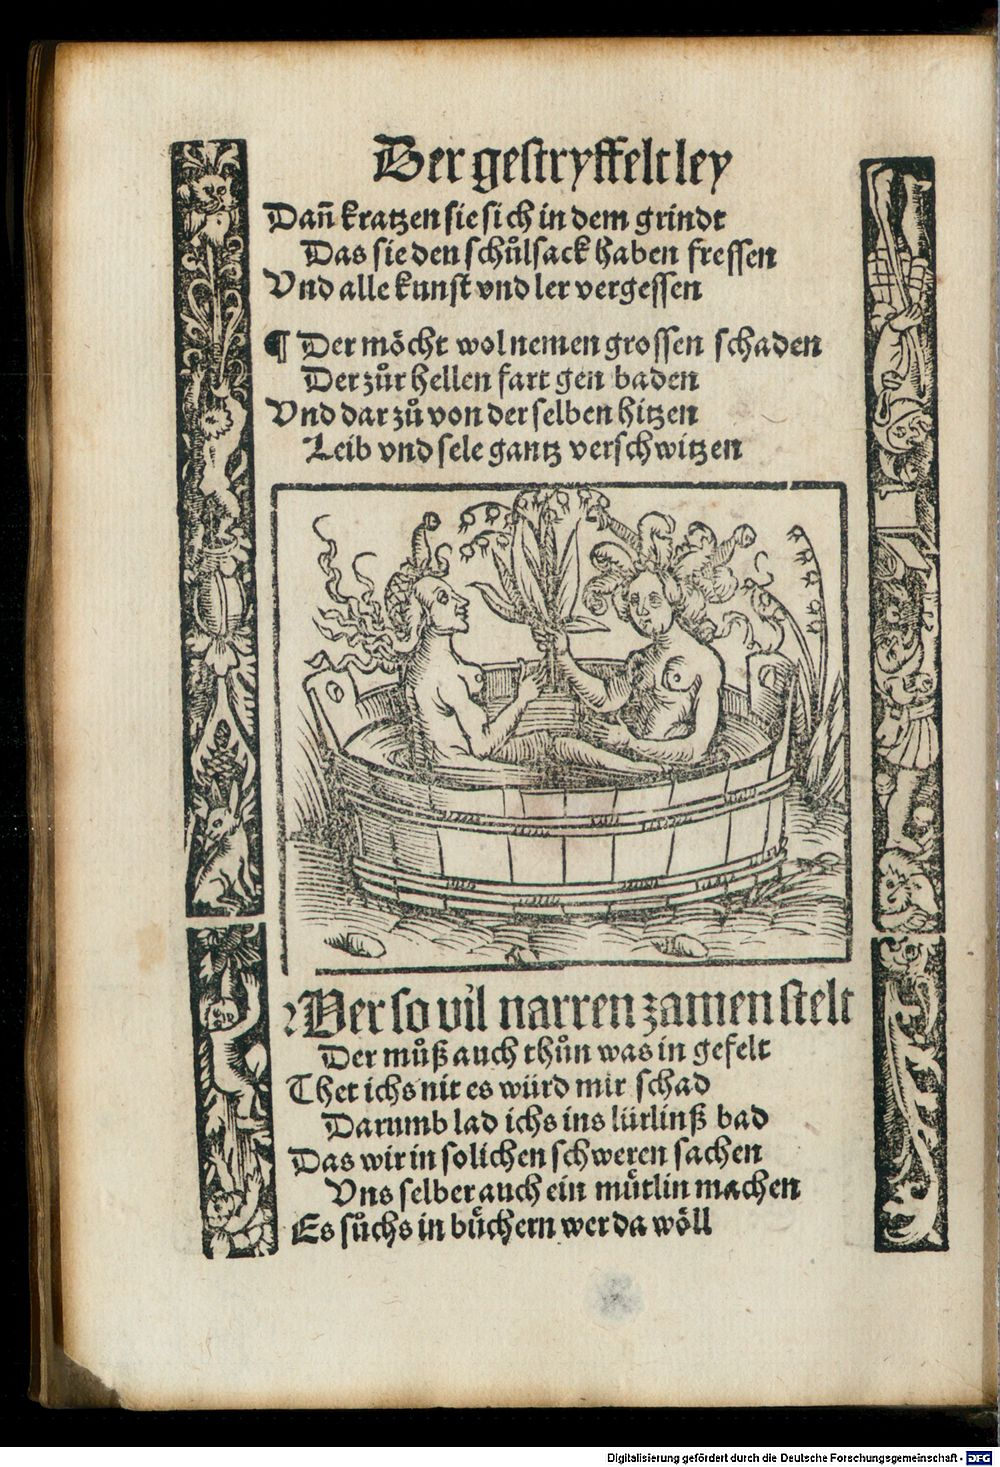 Der gestryffelt ley
Dan̄ kratzen sie sich in dem grindt
Das sie den schůlsack haben fressen
Vnd alle kunst vnd ler vergessen
¶ Der möcht wol nemen grossen schaden
Der zůr hellen fart gen baden
Vnd dar zů von der selben hitzen
Leib vnd sele gantz verschwitzen
Wer so vil narren zamen stelt
Der můß auch thůn was in gefelt
Thet ichs nit es würd mir schad
Darumb lad ichs ins lürlinß bad
Das wir in solichen schweren sachen
Vns selber auch ein mütlin machen
Es sůchs in büchern wer da wöll
Digitalisierung gefördert durch die Deutsche Forschungsgemeinschaft - DFG